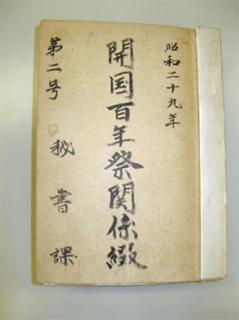 昭和二十九年
開国百年祭関係綴
第二号
秘書課